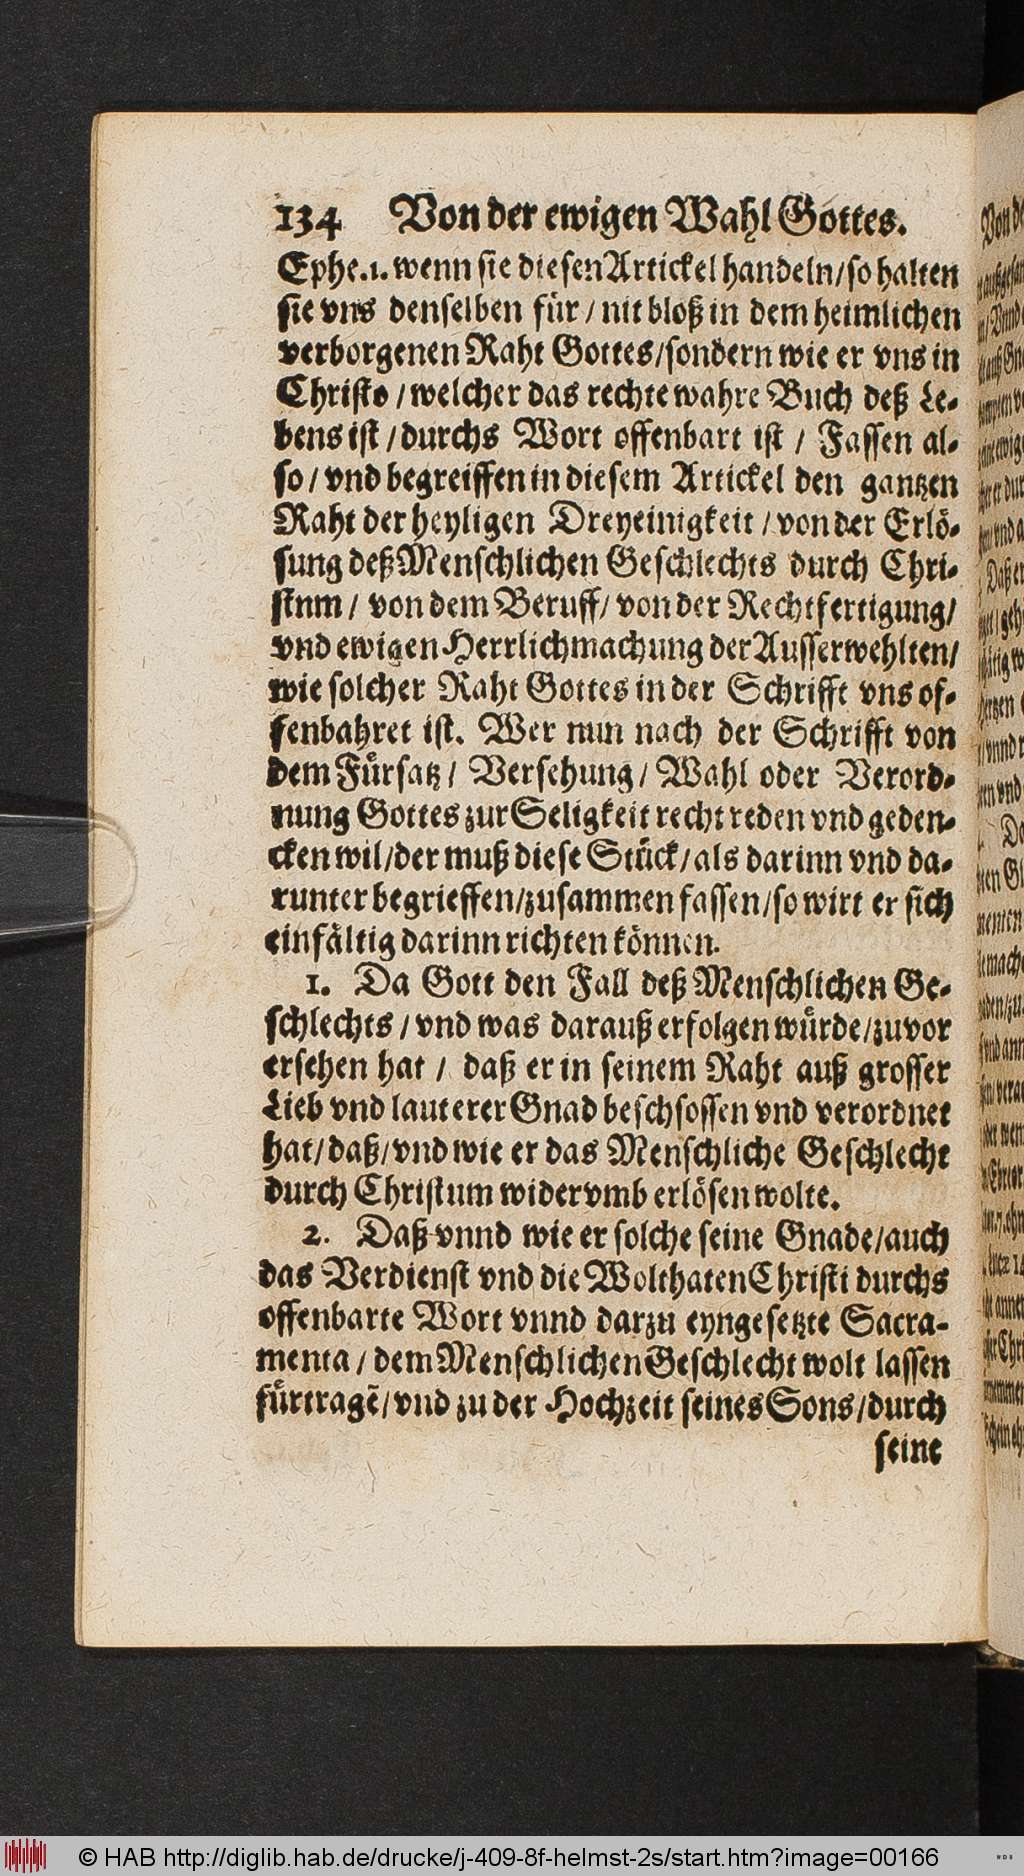 134 Von der ewigen Wahl Gottes.
Ephe. 1. wenn sie diesen Artickel handeln/ so halten
sie vns denselben für / nit bloß in dem heimlichen
verborgenen Raht Gottes/ sondern wie er vns in
Christo / welcher das rechte wahre Buch deß Le-
bens ist / durchs Wort offenbart ist / Fassen al-
so / vnd begreiffen in diesem Artickel den gantzen
Raht der heyligen Dreyeinigkeit / von der Erlö-
sung deß Menschlichen Geschlechts durch Chri-
stnm / von dem Beruff/ von der Rechtfertigung/
vnd ewigen Herrlichmachung der Ausserwehlten/
wie solcher Raht Gottes in der Schrifft vns of-
fenbahret ist. Wer nun nach der Schrifft von
dem Fürsatz / Versehung / Wahl oder Verord-
nung Gottes zur Seligkeit recht reden vnd geden-
cken wil/ der muß diese Stück/ als darinn vnd da-
runter begrieffen/ zusammen fassen/ so wirt er sich
einfältig darinn richten können.
1. Da Gott den Fall deß Menschlichen Ge-
schlechts / vnd was darauß erfolgen würde/ zuvor
ersehen hat / daß er in seinem Raht auß grosser
Lieb vnd lauterer Gnad beschsossen vnd verordnet
hat/ daß/ vnd wie er das Menschliche Geschlecht
durch Christum widervmb erlösen wolte.
2. Daß vnnd wie er solche seine Gnade/ auch
das Verdienst vnd die Wolthaten Christi durchs
offenbarte Wort vnnd darzu eyngesetzte Sacra-
menta / dem Menschlichen Geschlecht wolt lassen
fürtragẽ/ vnd zu der Hochzeit seines Sons/ durch
seine
© HAB http://diglib.hab.de/drucke/j-409-8f-helmst-2s/start.htm?image=00166